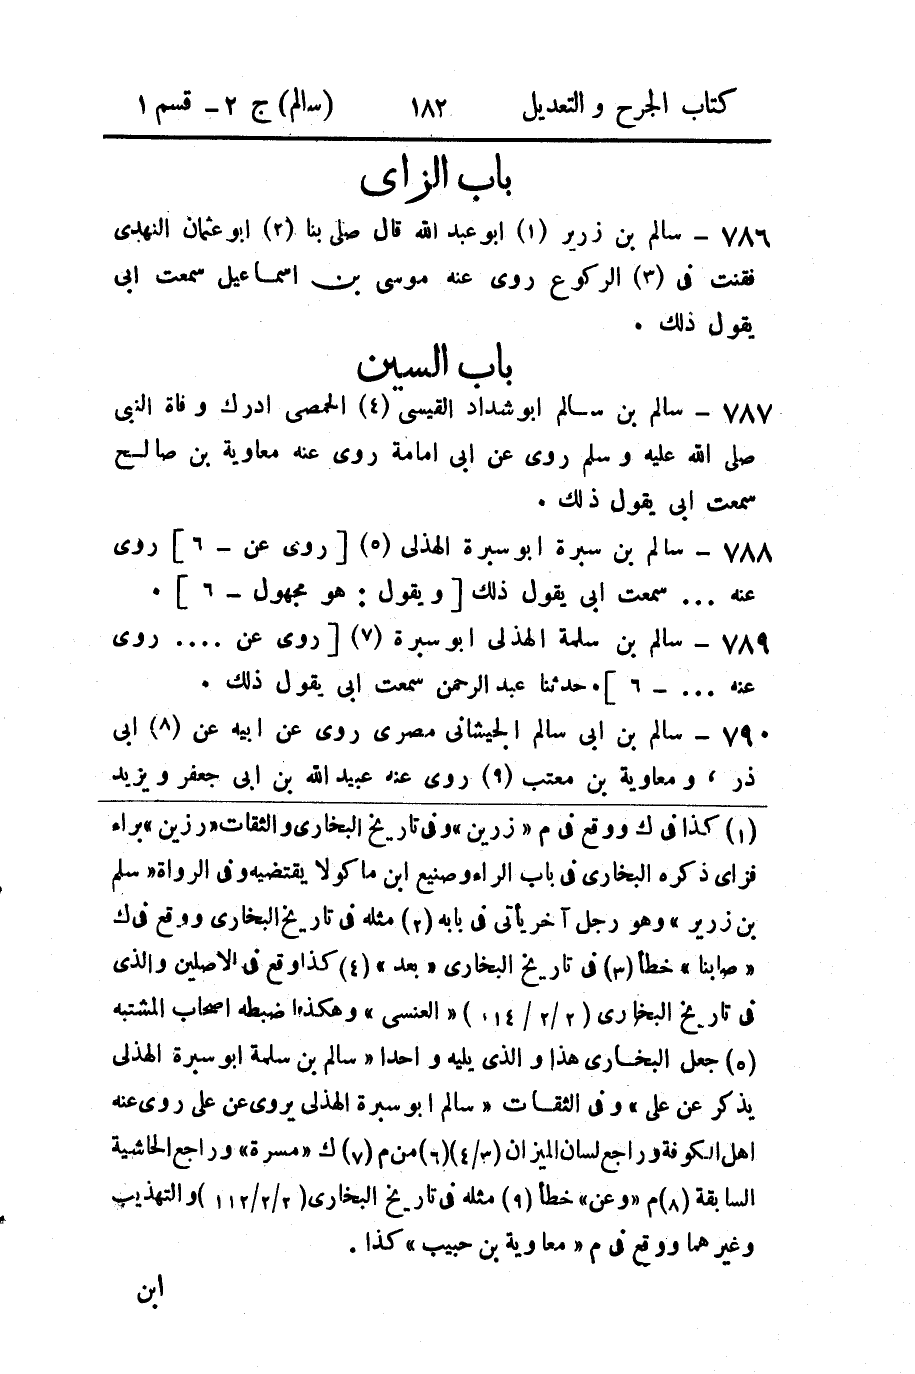 كتاب الجرح و التعديل ١٨٢ (سالم) ج ٢ - قسم ١
باب الزاى
٧٨٦ - سالم بن زرير (١) ابو عبد الله قال صلى بنا (٢) ابو عثمان النهدى
فقنت فى (٣) الركوع روى عنه موسى بن اسماعيل سمعت ابى
يقول ذلك .
باب السين
٧٨٧ - سالم بن سالم ابو شداد القيسى (٤) الحمصى ادرك وفاة النبى
صلى الله عليه و سلم روى عن ابى امامة روى عنه معاوية بن صالح
سمعت ابى يقول ذلك .
٧٨٨ - سالم بن سبرة ابو سبرة الهذلى (٥) [ روى عن - ٦ ] روى
عنه ... سمعت ابى يقول ذلك [ و يقول : هو مجهول - ٦ ] .
٧٨٩ - سالم بن سلمة الهذلى ابو سبرة (٧) [ روى عن .... روى
عنه ... - ٦ ]. حدثنا عبد الرحمن سمعت ابى يقول ذلك .
٧٩٠ - سالم بن ابى سالم الجيشانى مصرى روى عن ابيه عن (٨) ابى
ذر ، و معاوية بن معتب (٩) روى عنه عبيد الله بن ابى جعفر و يزيد
(١) كذا فى ك ووقع فى م « زرين » وفى تاريخ البخارى والثقات « رزين » براء
فزاى ذكره البخارى فى باب الراء وصنيع ابن ماكولا يقتضيه وفى الرواة « سلم
بن زرير » وهو رجل آخر يأتى فى بابه (٢) مثله فى تاريخ البخارى ووقع فى ك
« صابنا » خطأ (٣) فى تاريخ البخارى « بعد » (٤) كذا وقع فى الاصلين والذى
فى تاريخ البخارى ( ٢/ ٢/ ١١٤ ) « العنسى » وهكذا ضبطه اصحاب المشتبه
(٥) جعل البخارى هذا و الذى يليه و احدا « سالم بن سلمة ابو سبرة الهذلى
يذكر عن على » و فى الثقات « سالم ابو سبرة الهذلى يروى عن على روى عنه
اهل الكوفة وراجع لسان الميزان (٤/٣) (٦) من م (٧) ك « مسرة » وراجع الحاشية
السابقة (٨) م « وعن » خطأ (٩) مثله فى تاريخ البخارى (٢/ ٢/ ١١٢) و التهذيب
وغيرهما ووقع فى م « معاوية بن حبيب » كذا .
ابن